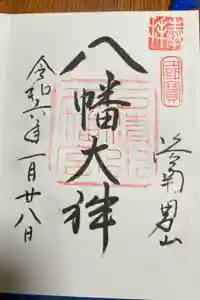 奉拝
國寶
洛南男山
八幡大神
令和六年一月廿八日